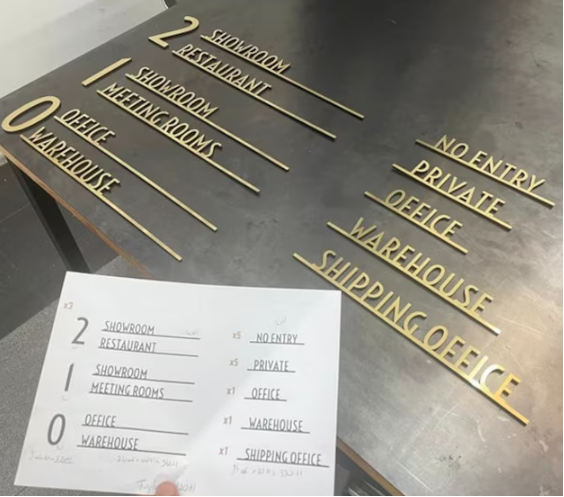 2
SHOWROOM
RESTAURANT
1
SHOWROOM
MEETING ROOMS
0
OFFICE
WAREHOUSE
NO ENTRY
PRIVATE
OFFICE
WAREHOUSE
SHIPPING OFFICE
x3
2
SHOWROOM
RESTAURANT
1
SHOWROOM
MEETING ROOMS
0
OFFICE
WAREHOUSE
x5 NO ENTRY
x5 PRIVATE
x1 OFFICE
x1 WAREHOUSE
x1 SHIPPING OFFICE